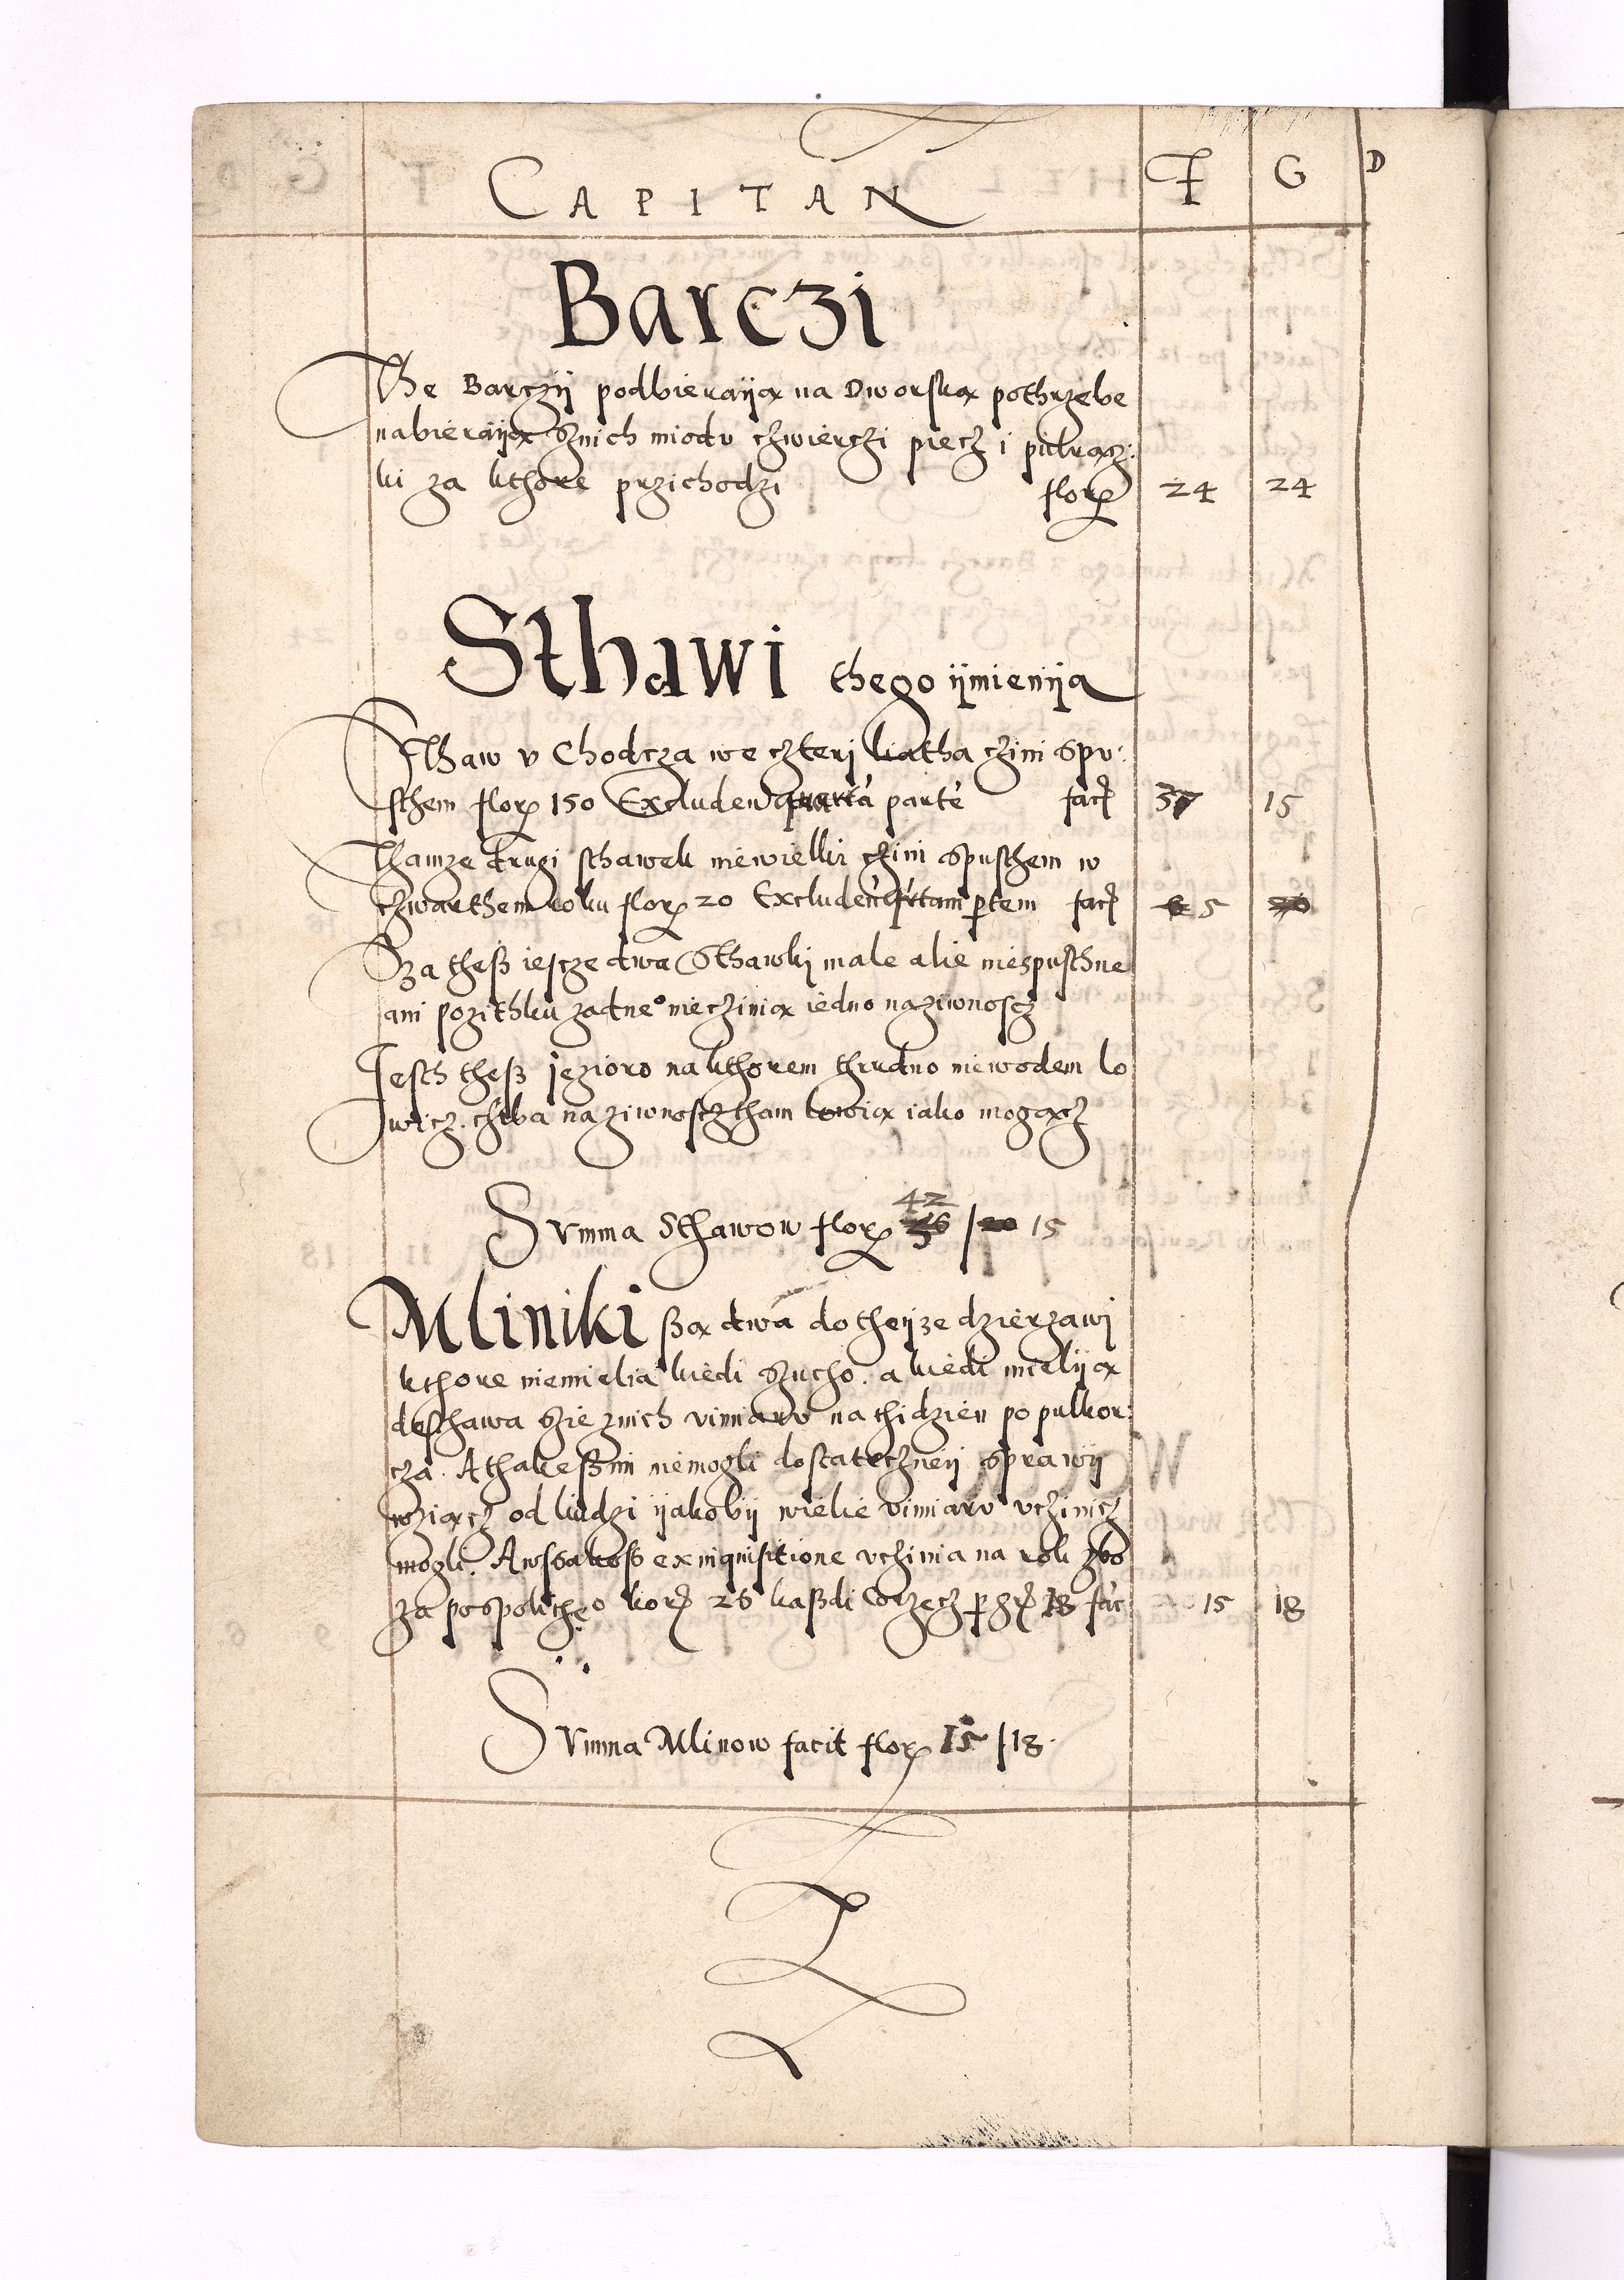 CAPITAN F G D
Barczi
The Barczij podbieraiją na Dworską pothrzebe
nabieraiją sznich miodu czwierczi piecz i pulrącz:
ki za kthore przichodzi florp 24 24
Sthawi thego ijmienija
Sthaw v Chodcza we czterj liatha czini spu:
sthem florp 150 Excluden quarta parte facj 37 15
Thamze drugi sthawek niewielki czini spusthem w
czwarthem roku florp 20 Exclude partem facj 5
Sza thesz iescze dwa Sthawkj male alie niespusthne
ani pozithku zadneo nieczinią iedno nazіwnoscz
Jesth thesz jezioro nakthorem thrudno niewodem lo
wicz. chiba naziwnoscz tham lowią iako mogącz
Svmma Sthawow florp 42 / 15
Mliniki szą dwa dotheijze dzierzawj
kthore niemielia kiedi szucho. a kiedi mieliją
desthawa szie znich vimiaru na thidzien po pulkor:
cza. Athakeszmi niemogli dostateczneij sprawij
wziącz od liudzi ijakobij wielie vimiaru vczinicz
mogli. A wszakosz ex inquisitione vchinia na rok zbo
za pospolitheo korj 26 kaszdi korzecz p grj 18 fac 15 18
Svmma Mlinow facit florp 15 / 18